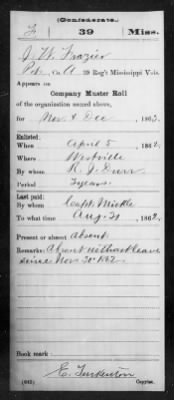 (Confederate.)
F 39 Miss.
J. W. Frazier
Pvt., Co. A, 39 Reg't Mississippi Vols.
Appears on
Company Muster Roll
of the organization named above,
for Nov & Dec, 1862.
Enlisted:
When April 5, 1862.
Where Westville
By whom R. J. Durr
Period 3 years.
Last paid:
By whom Capt. Mickle
To what time Aug 31, 1862.
Present or absent Absent
Remarks: Absent without leave
since Nov. 30" 1862.
Book mark:
(642) Copyist.